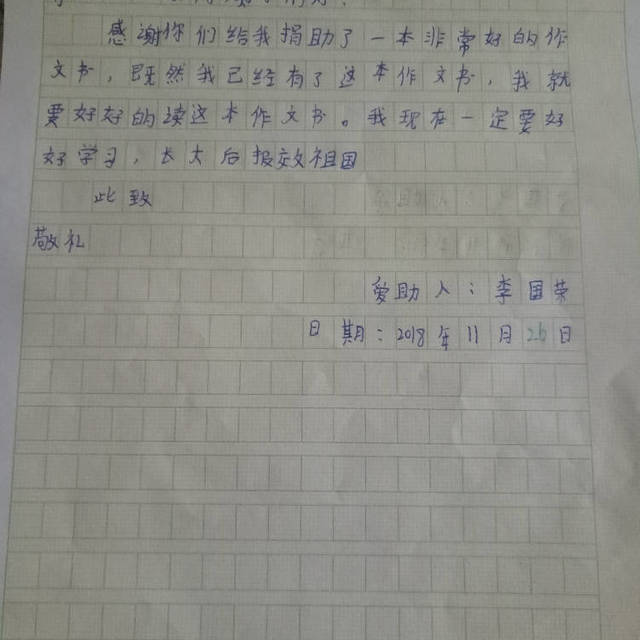 感谢你们给我捐助了一本非常好的作
文书，既然我已经有了这本作文书，我就
要好好的读这本作文书。我现在一定要好
好学习，长大后报效祖国
此致
敬礼
爱助人：李国荣
日期：2018年11月26日